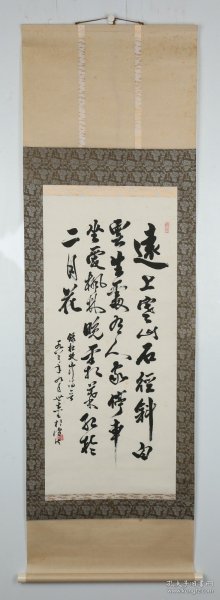 遠上寒山石徑斜白
雲生處有人家停車
坐愛楓林晚霜葉紅於
二月花
錄杜牧山行詩一首
一九八二年